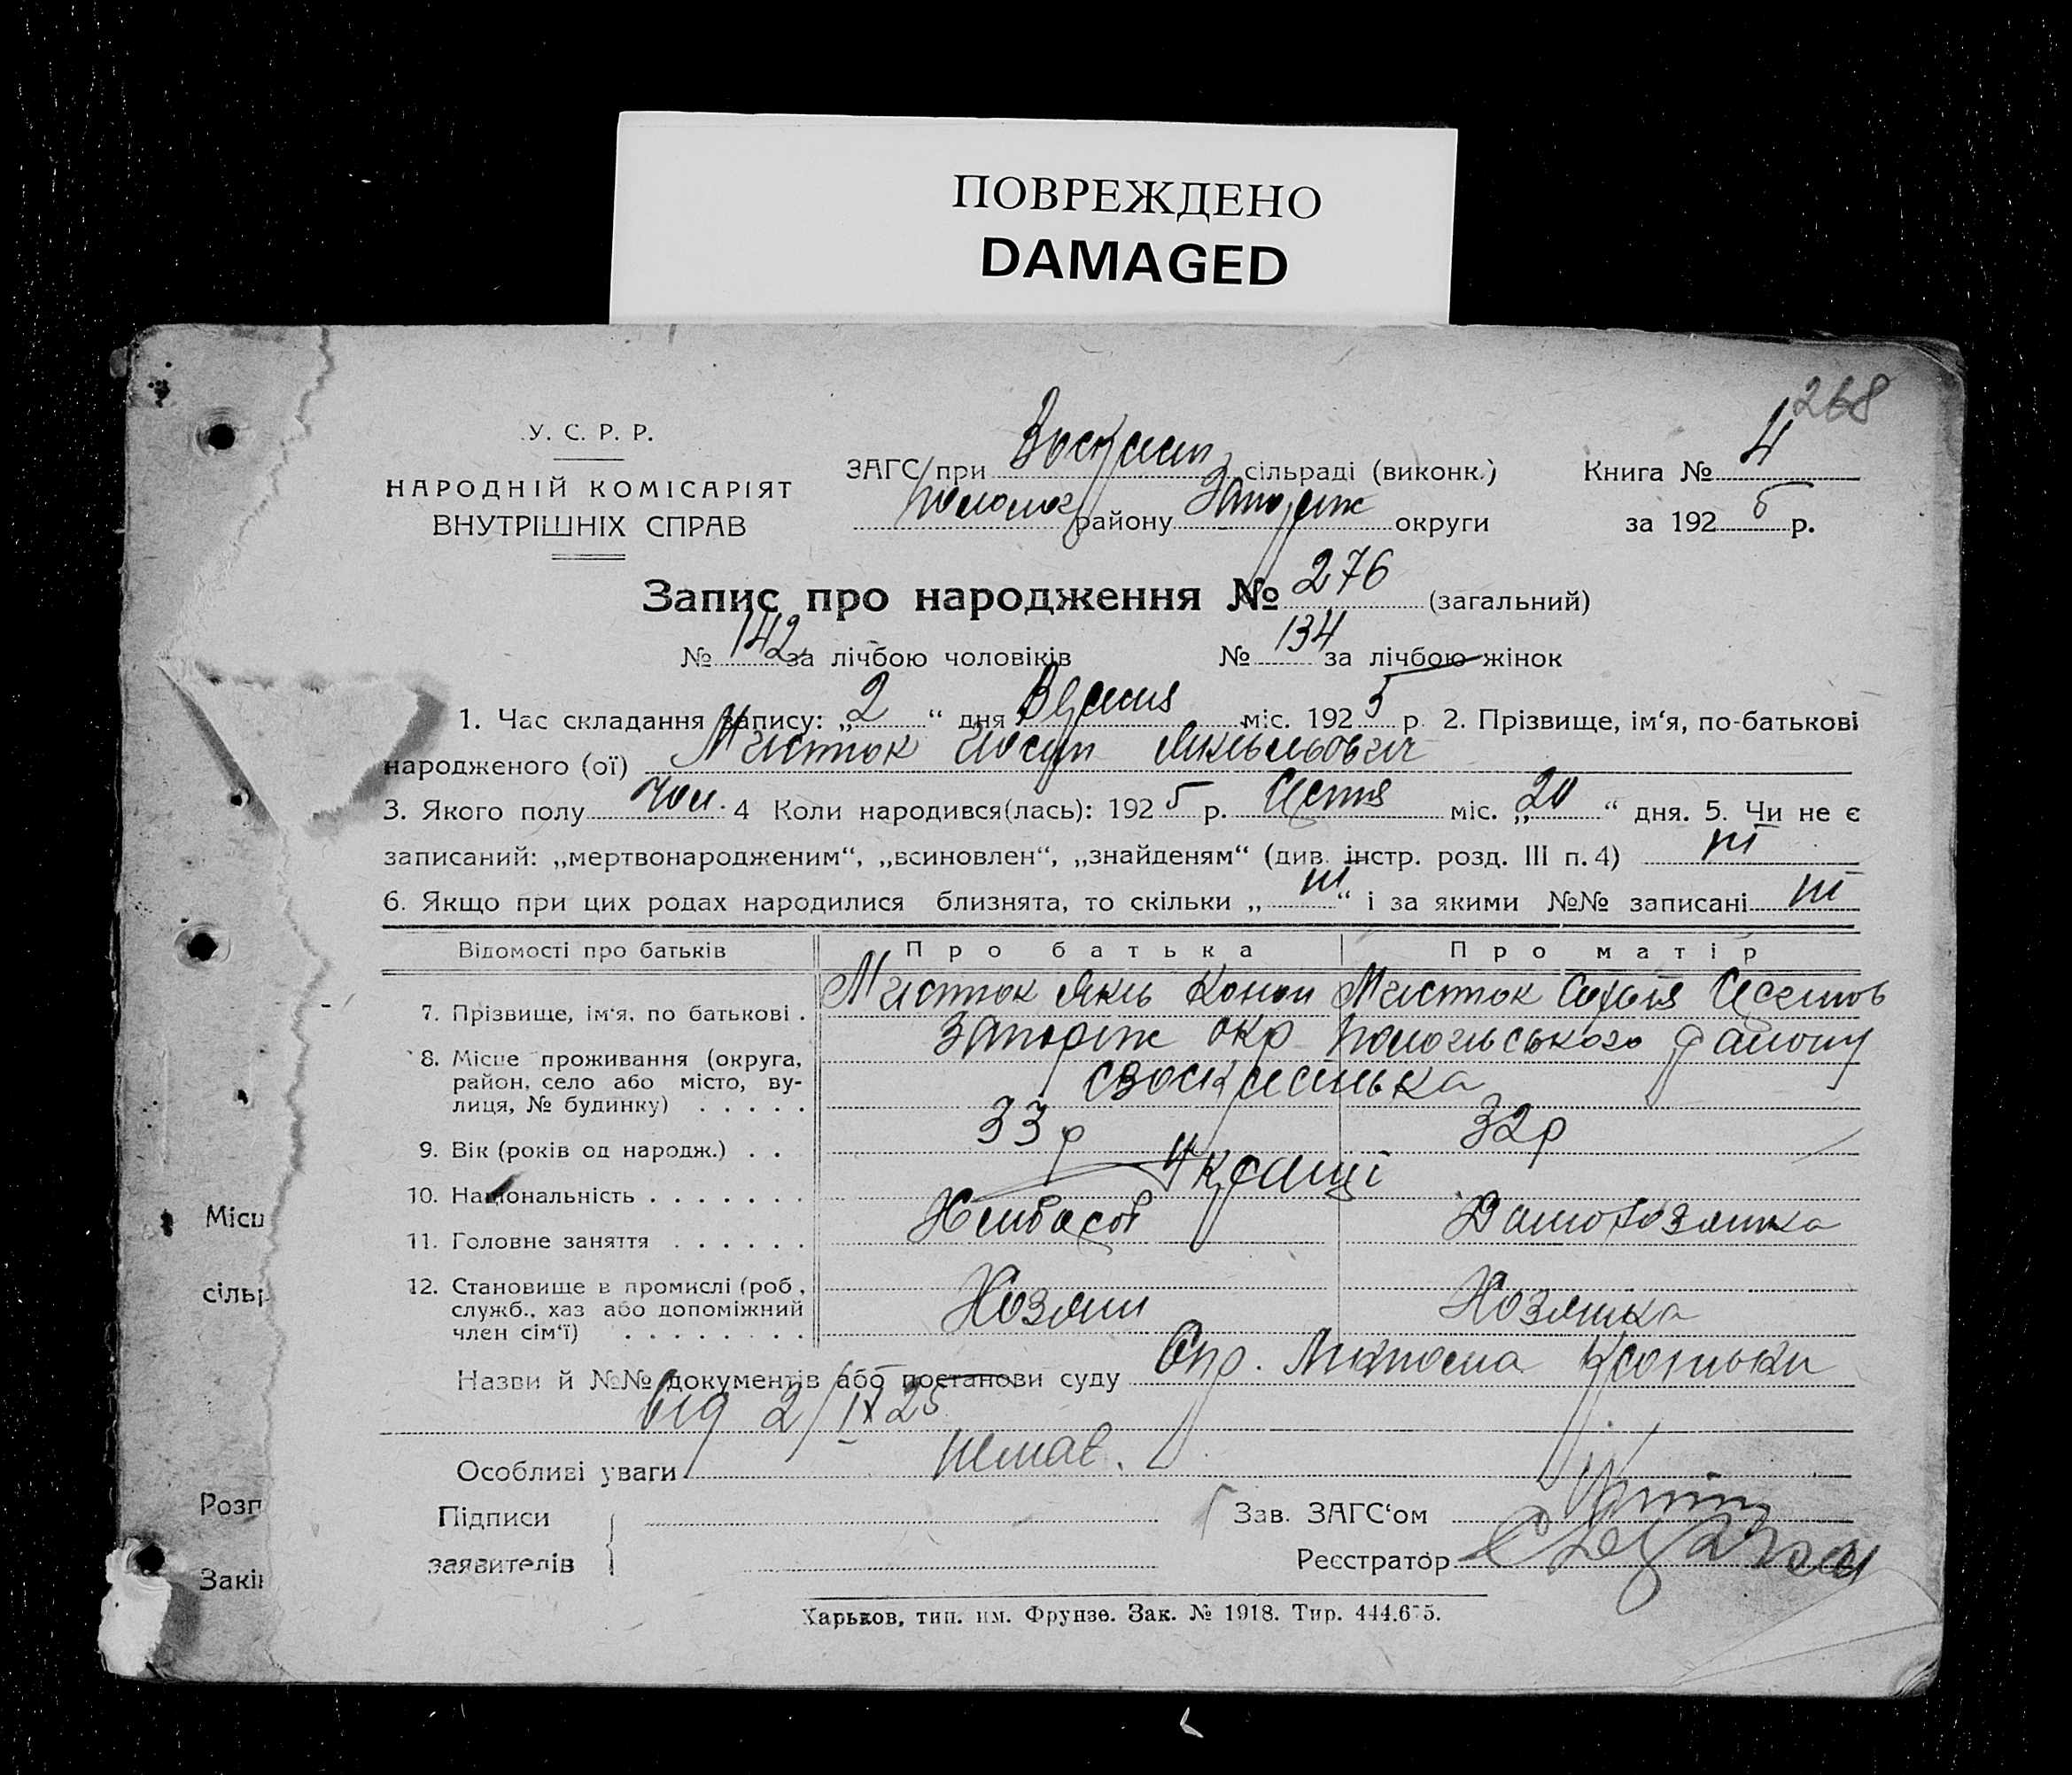 ПОВРЕЖДЕНО
DAMAGED
268
У. С. Р. Р.
НАРОДНІЙ КОМІСАРІЯТ
ВНУТРІШНІХ СПРАВ
ЗАГС при сільраді (виконк.)
Полог району Запоріж округи
Книга № 4
за 1925 р.
Запис про народження № 276 (загальний)
№ 142 за лічбою чоловіків № 134 за лічбою жінок
1. Час складання запису: „2“ дня Вересня міс. 1925 р. 2. Прізвище, ім‘я, по-батькові
народженого (ої) Йосип Якильович
3. Якого полу чол. 4 Коли народився(лась): 1925 р. Серпня міс. „20“ дня. 5. Чи не є
записаний: „мертвонародженим“, „всиновлен“, „знайденям“ (див. інстр. розд. III п. 4) ні
6. Якщо при цих родах народилися близнята, то скільки „ні“ і за якими №№ записані ні
Відомості про батьків Про батька Про матір
7. Прізвище, ім‘я, по батькові . Конон Софья
8. Місце проживання (округа, район, село або місто, вулиця, № будинку) . . . . . Запоріж окр Пологівського району
с Воскресенька
9. Вік (років од народж.) . . 33 р 32 р
10. Національність . . . . . . . Українці
11. Головне заняття . . . . . . Хлібороб Домохозяйка
12. Становище в промислі (роб, служб., хаз або допоміжний член сім‘ї) . . . . . . . . Хозяин Хозяйка
Назви й №№ документів або постанови суду
від 2/IX 25
Особливі уваги немає.
Підписи
заявителів
Зав. ЗАГС‘ом
Реєстратор
Харьков, тип. им. Фрунзе. Зак. № 1918. Тир. 444.675.
Місц
сільр
Розп
Закін